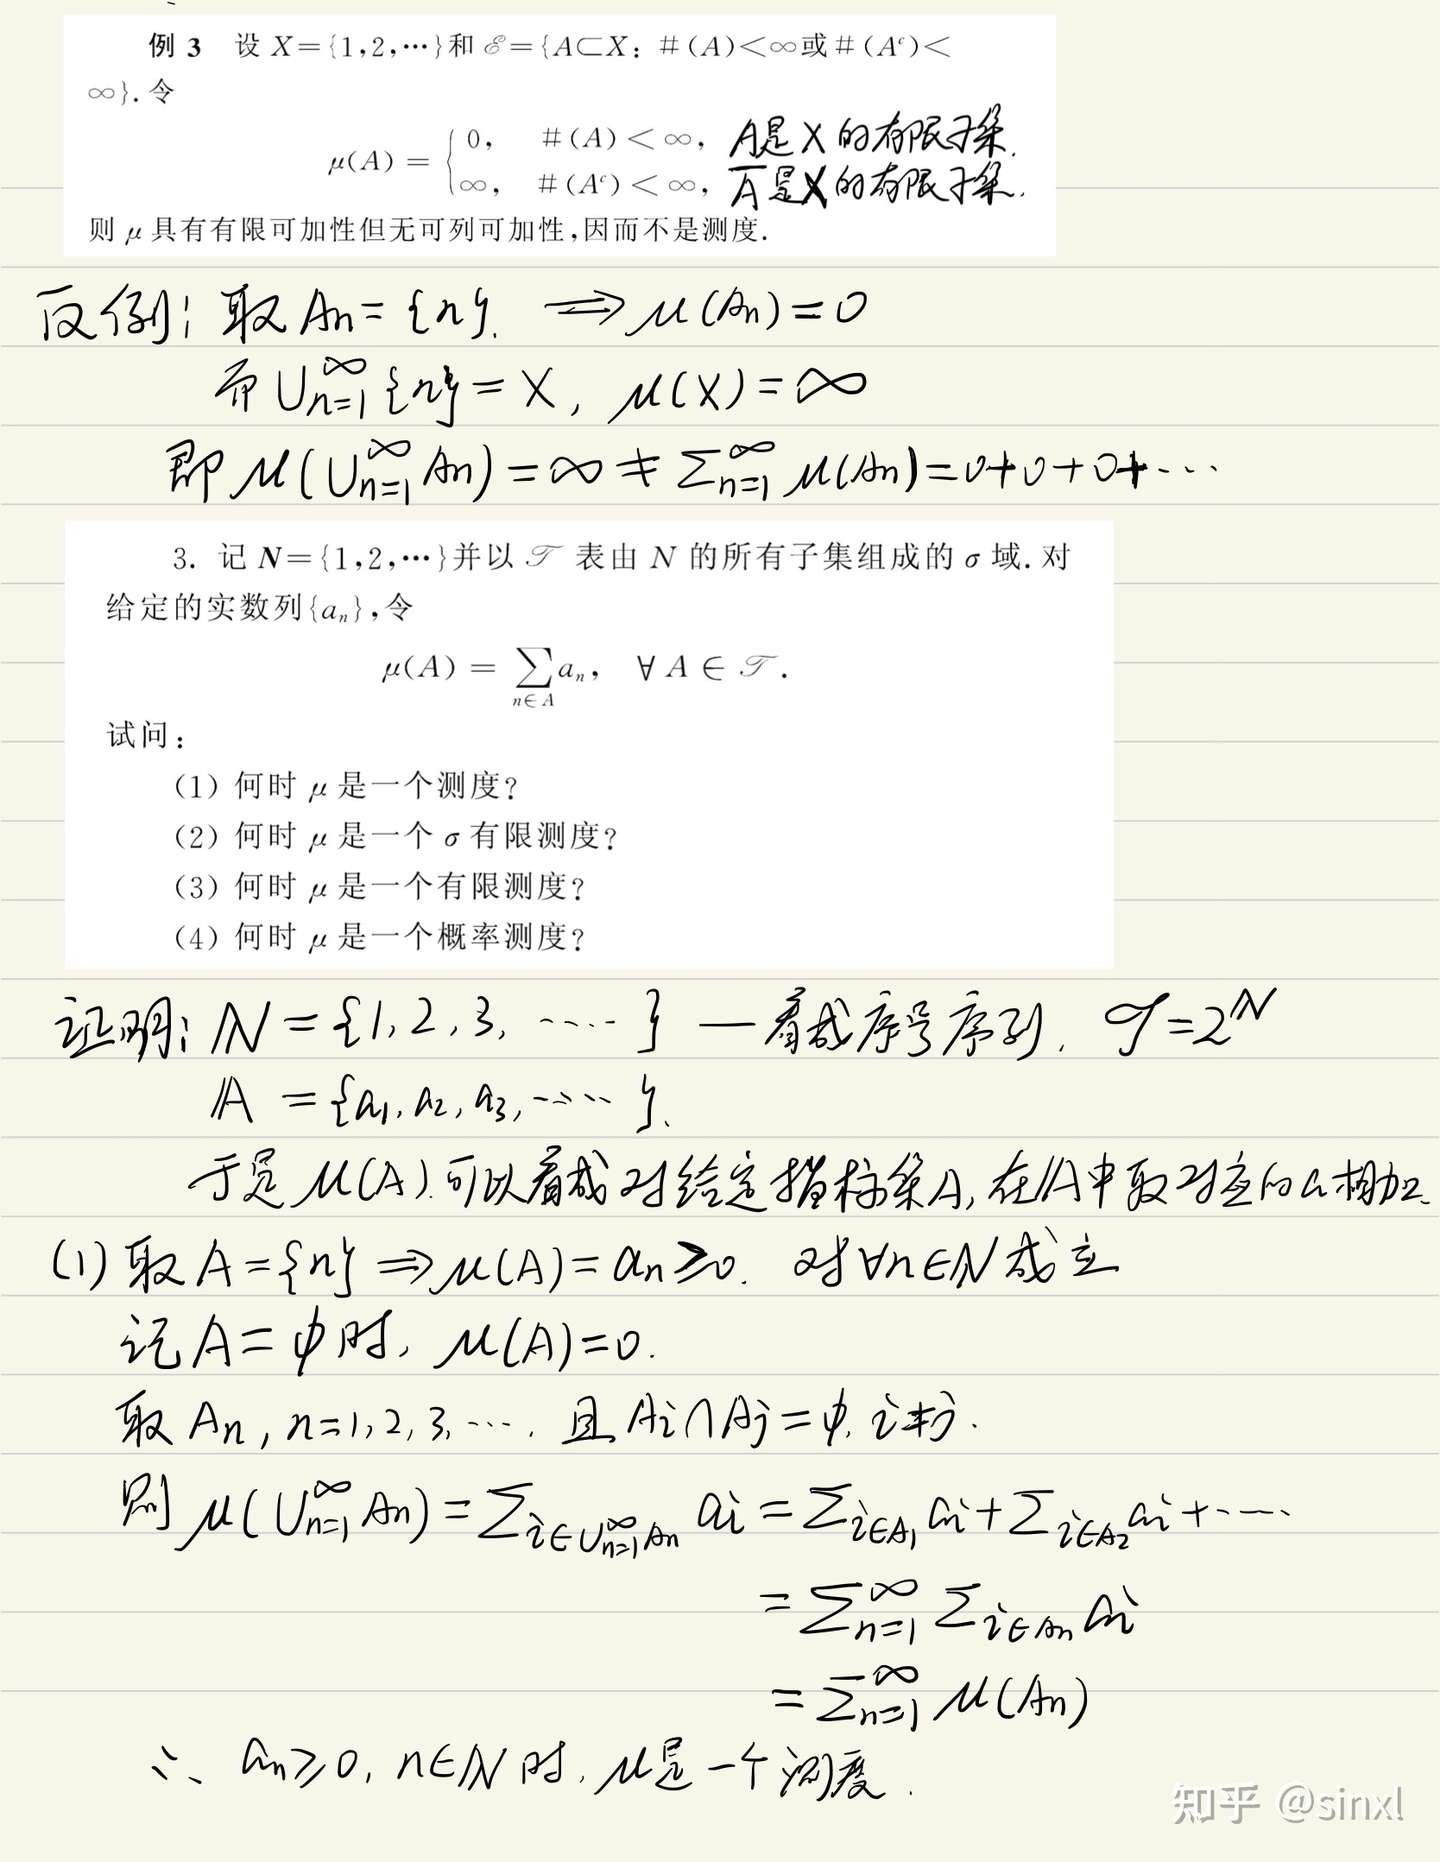 例 3 设 X={1,2,⋯}和 ℰ={A⊂X: #(A)<∞或#(Aᶜ)<
∞}. 令
μ(A) = { 0, #(A)<∞, A是X的有限子集.
∞, #(Aᶜ)<∞, A̅是X的有限子集.
则 μ 具有有限可加性但无可列可加性,因而不是测度.
反例: 取 An={n}. ⟹ μ(An)=0
而 ∪_{n=1}^∞ {n}=X, μ(X)=∞
即 μ(∪_{n=1}^∞ An)=∞ ≠ Σ_{n=1}^∞ μ(An)=0+0+0+⋯
3. 记 N={1,2,⋯}并以 𝒯 表由 N 的所有子集组成的 σ 域. 对
给定的实数列{aₙ},令
μ(A) = Σ_{n∈A} aₙ, ∀ A ∈ 𝒯.
试问:
(1) 何时 μ 是一个测度?
(2) 何时 μ 是一个 σ 有限测度?
(3) 何时 μ 是一个有限测度?
(4) 何时 μ 是一个概率测度?
证明: ℕ={1,2,3,⋯⋯} — 看成序号序列. 𝒯=2^ℕ
𝔸={a₁,a₂,a₃,⋯⋯}.
于是 μ(A).可以看成对给定指标集A,在𝔸中取对应的a相加.
(1) 取 A={n} ⟹ μ(A)=an≥0. 对∀n∈ℕ成立
记 A=φ时, μ(A)=0.
取 An, n=1,2,3,⋯. 且 Ai∩Aj=φ, i≠j.
则 μ(∪_{n=1}^∞ An)=Σ_{i∈∪_{n=1}^∞ An} ai=Σ_{i∈A₁} ai+Σ_{i∈A₂} ai+⋯⋯
=Σ_{n=1}^∞ Σ_{i∈An} ai
=Σ_{n=1}^∞ μ(An)
∴ an≥0, n∈ℕ 时, μ是一个测度.
知乎 @sinxl